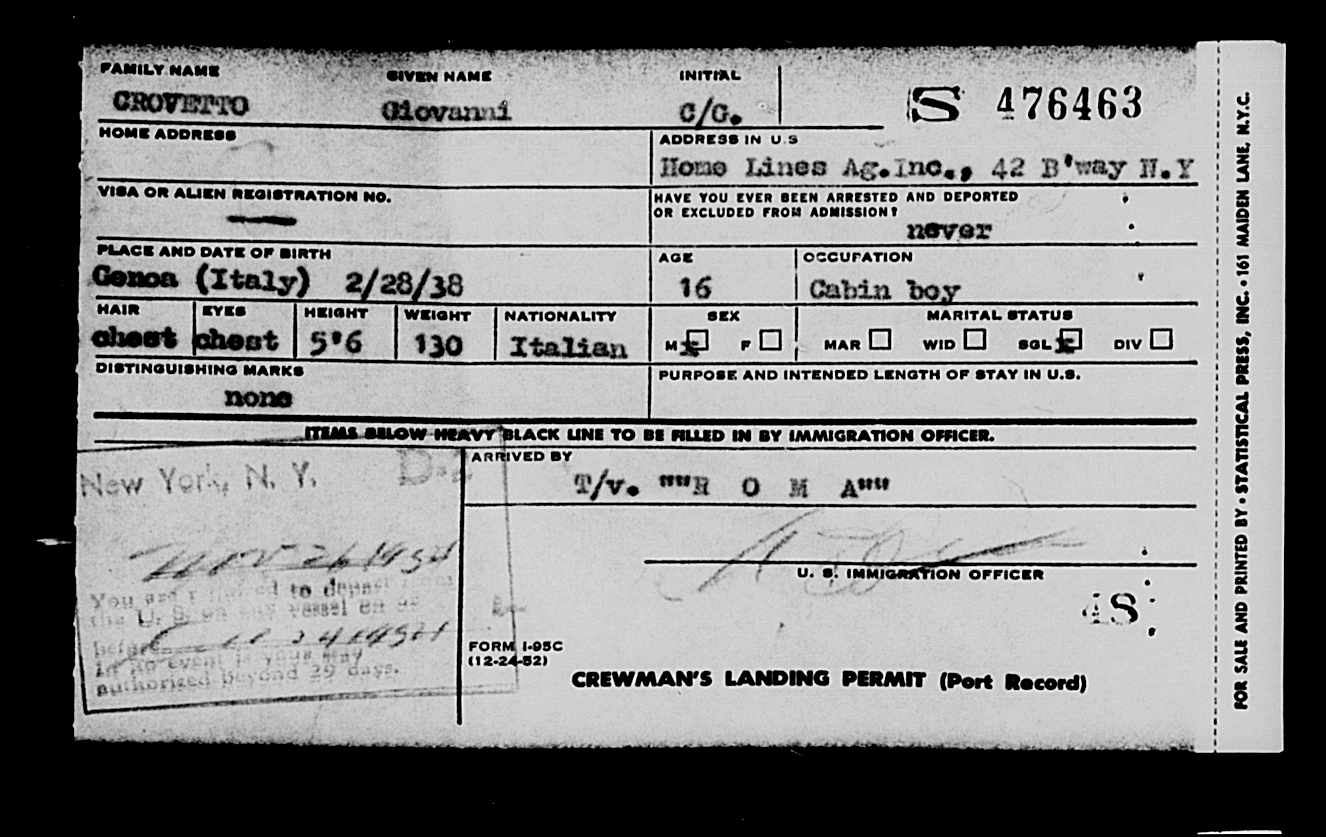 FAMILY NAME GIVEN NAME INITIAL
CROVETTO Giovanni C/G. S 476463
HOME ADDRESS ADDRESS IN U.S
Home Lines Ag.Inc., 42 B'way N.Y
VISA OR ALIEN REGISTRATION NO. HAVE YOU EVER BEEN ARRESTED AND DEPORTED
OR EXCLUDED FROM ADMISSION?
never
PLACE AND DATE OF BIRTH AGE OCCUPATION
Genoa (Italy) 2/28/38 16 Cabin boy
HAIR EYES HEIGHT WEIGHT NATIONALITY SEX MARITAL STATUS
chest chest 5'6 130 Italian M x F MAR WID SGL x DIV
DISTINGUISHING MARKS PURPOSE AND INTENDED LENGTH OF STAY IN U.S.
none
ITEMS BELOW HEAVY BLACK LINE TO BE FILLED IN BY IMMIGRATION OFFICER.
ARRIVED BY
New York, N. Y.
T/v. ""R O M A""
NOV 26 1954
U. S. IMMIGRATION OFFICER
You are to depart
the U. S. on any vessel on or
before 24 1954
In no event is your stay
authorized beyond 29 days.
48
FORM I-95C
(12-24-52)
CREWMAN'S LANDING PERMIT (Port Record)
FOR SALE AND PRINTED BY • STATISTICAL PRESS, INC. • 161 MAIDEN LANE, N.Y.C.